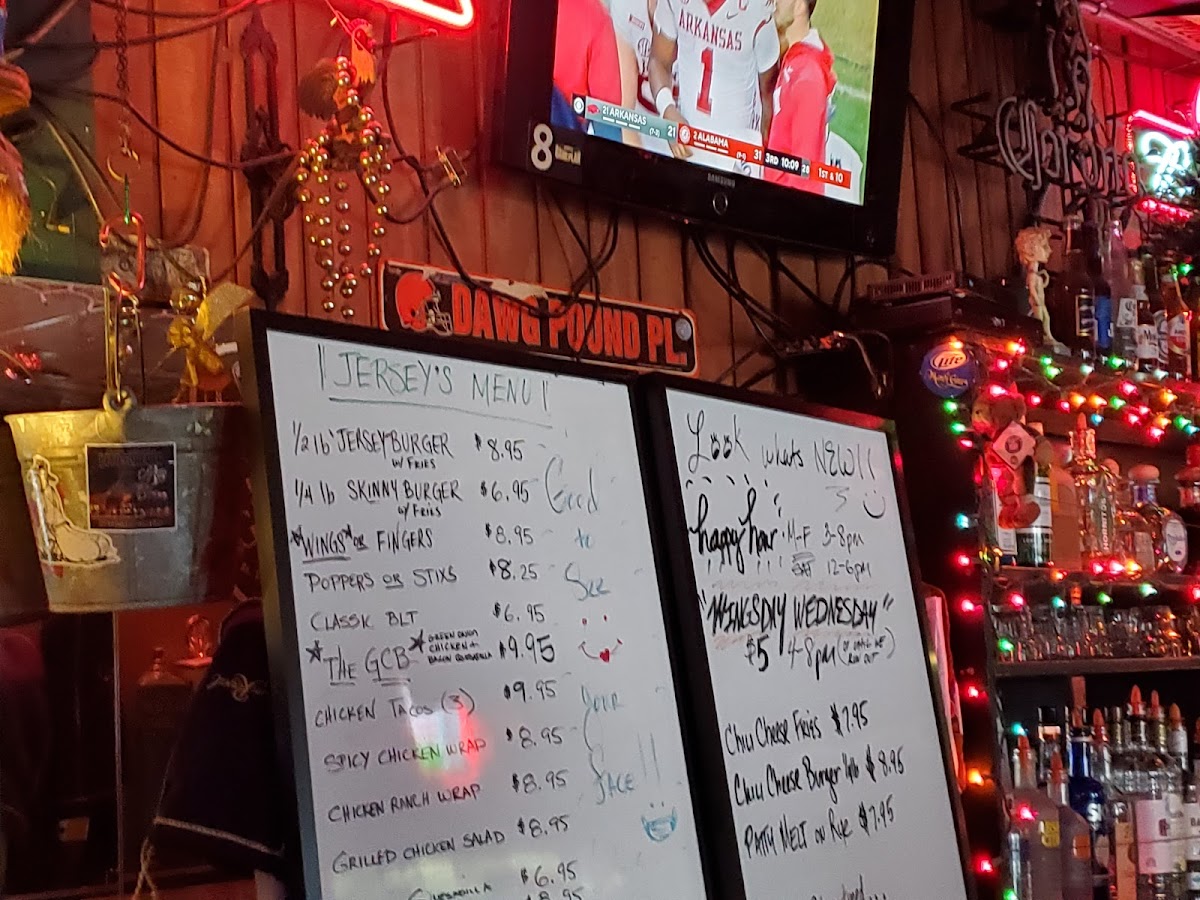 ARKANSAS
1
21 ARKANSAS 21 2 ALABAMA 31 3RD 10:09 28
1ST & 10
8
SAMSUNG
Corona
DAWG POUND PL.
Lite
"JERSEY'S MENU"
1/2 lb JERSEY BURGER $8.95
W/ FRIES
1/4 lb SKINNY BURGER $6.95
W/ FRIES
*WINGS* OR FINGERS $8.95
POPPERS OR STIXS $8.25
CLASSIC BLT $6.95
*THE GCB* GREEN ONION CHICKEN + BACON QUESADILLA $9.95
CHICKEN TACOS (3) $9.95
SPICY CHICKEN WRAP $8.95
CHICKEN RANCH WRAP $8.95
GRILLED CHICKEN SALAD $8.95
QUESADILLA $6.95
8.95
Good
to
See
Your
Face!!
Look whats NEW!!
happy hour M-F 3-8pm
SAT 12-6pm
"WINGSDAY WEDNESDAY"
$5 4-8pm (OR UNTIL WE RUN OUT)
Chili Cheese Fries $7.95
Chili Cheese Burger 1/2 lb $8.95
PATTY MELT ON RYE $7.95